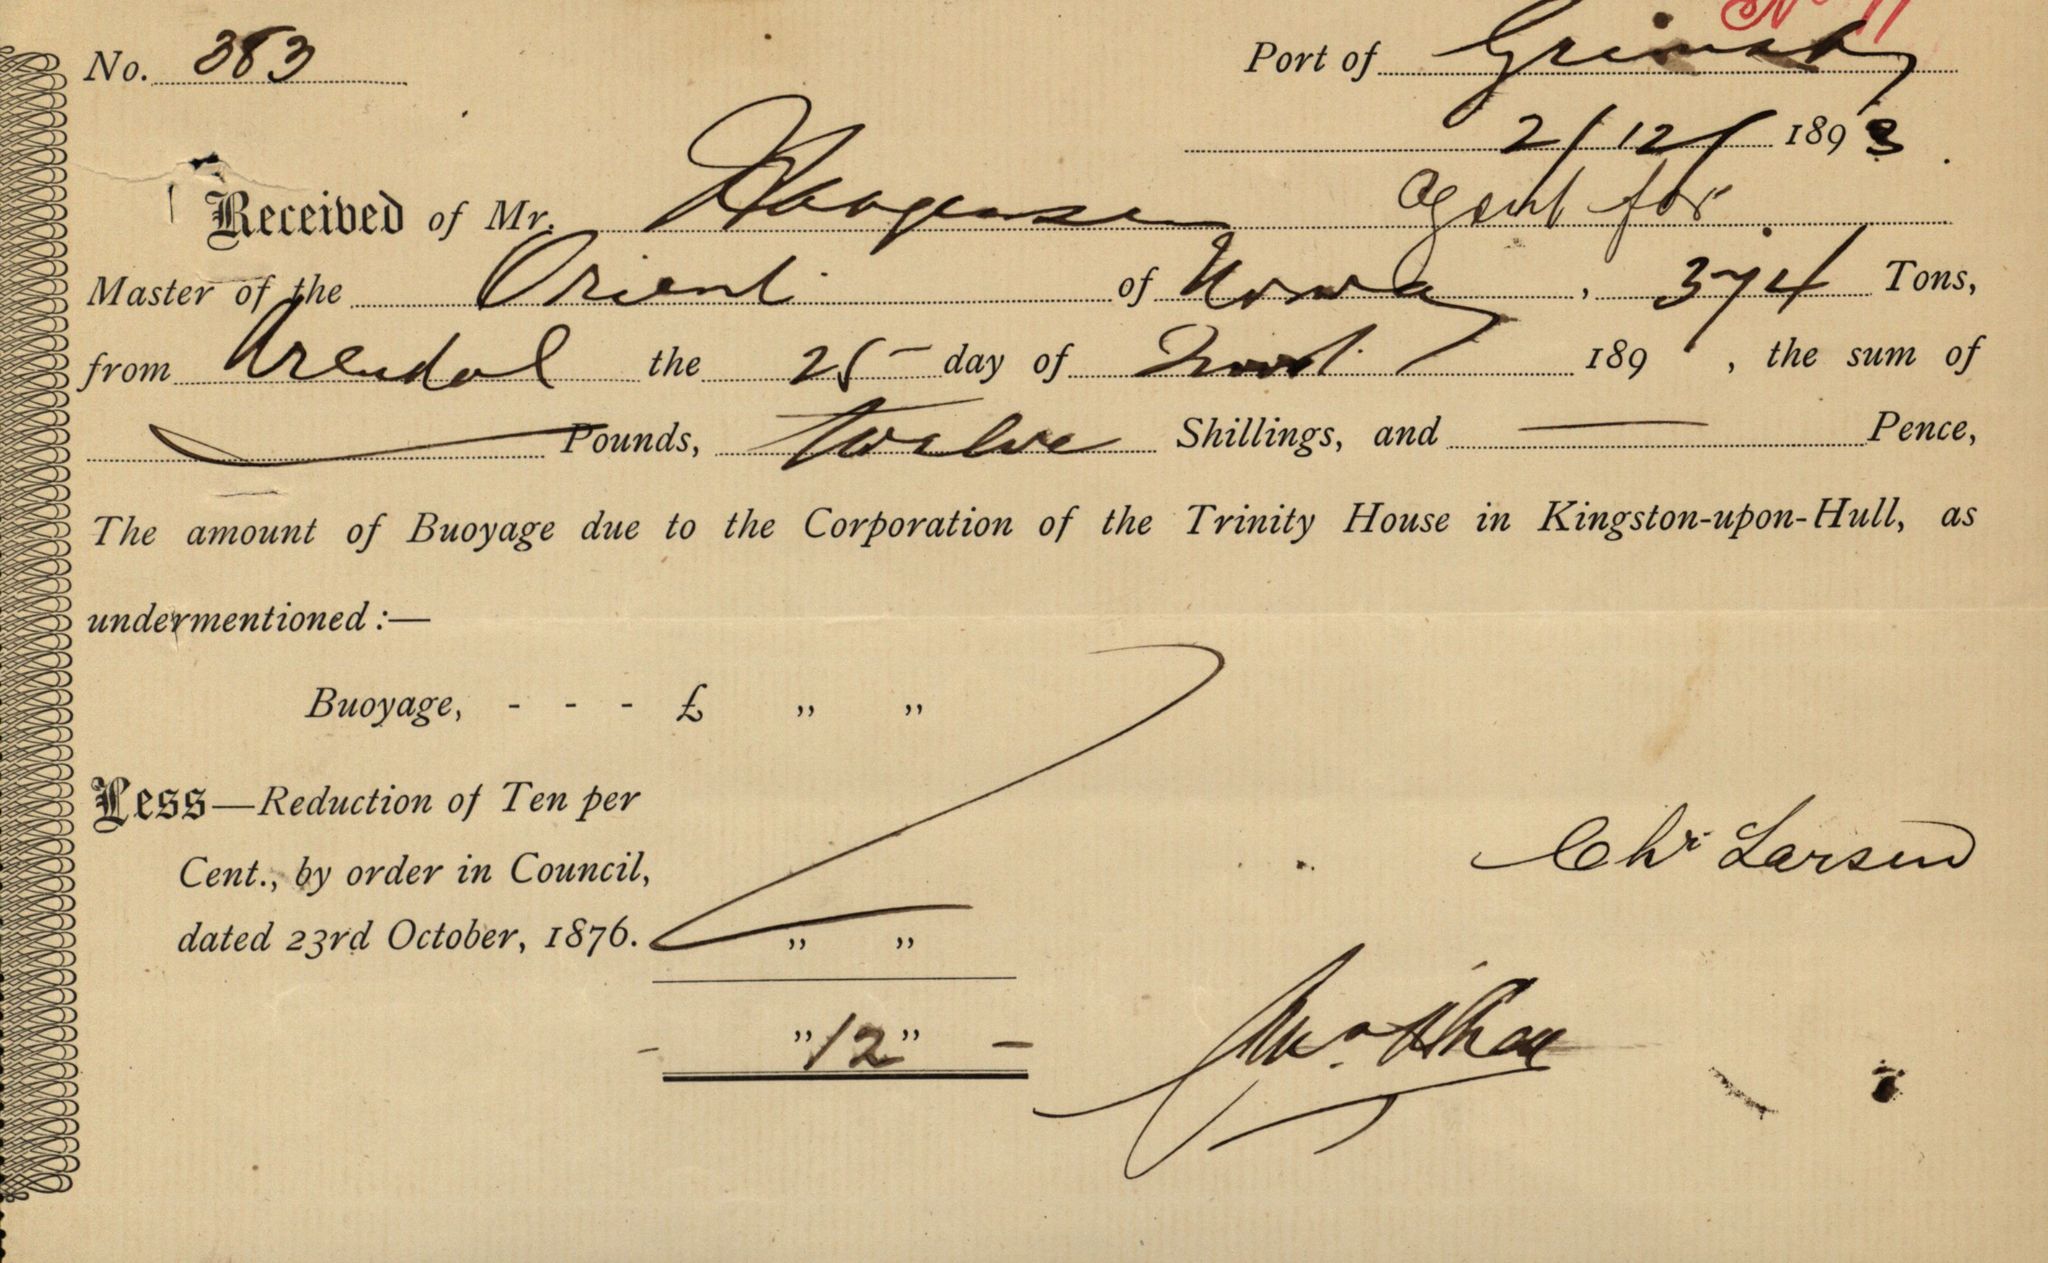 No. 383 Port of Grimsby
2/12/ 1893
Received of Mr. Haagensen agent for
Master of the Orient of Norway, 374 Tons,
from Arendal the 25 day of Novr. 189 , the sum of
Pounds, twelve Shillings, and — Pence,
The amount of Buoyage due to the Corporation of the Trinity House in Kingston-upon-Hull, as
undermentioned:—
Buoyage, - - - £ „ „
Less—Reduction of Ten per
Cent., by order in Council,
dated 23rd October, 1876. „ „
Chr Larsen
- „ 12 „ -